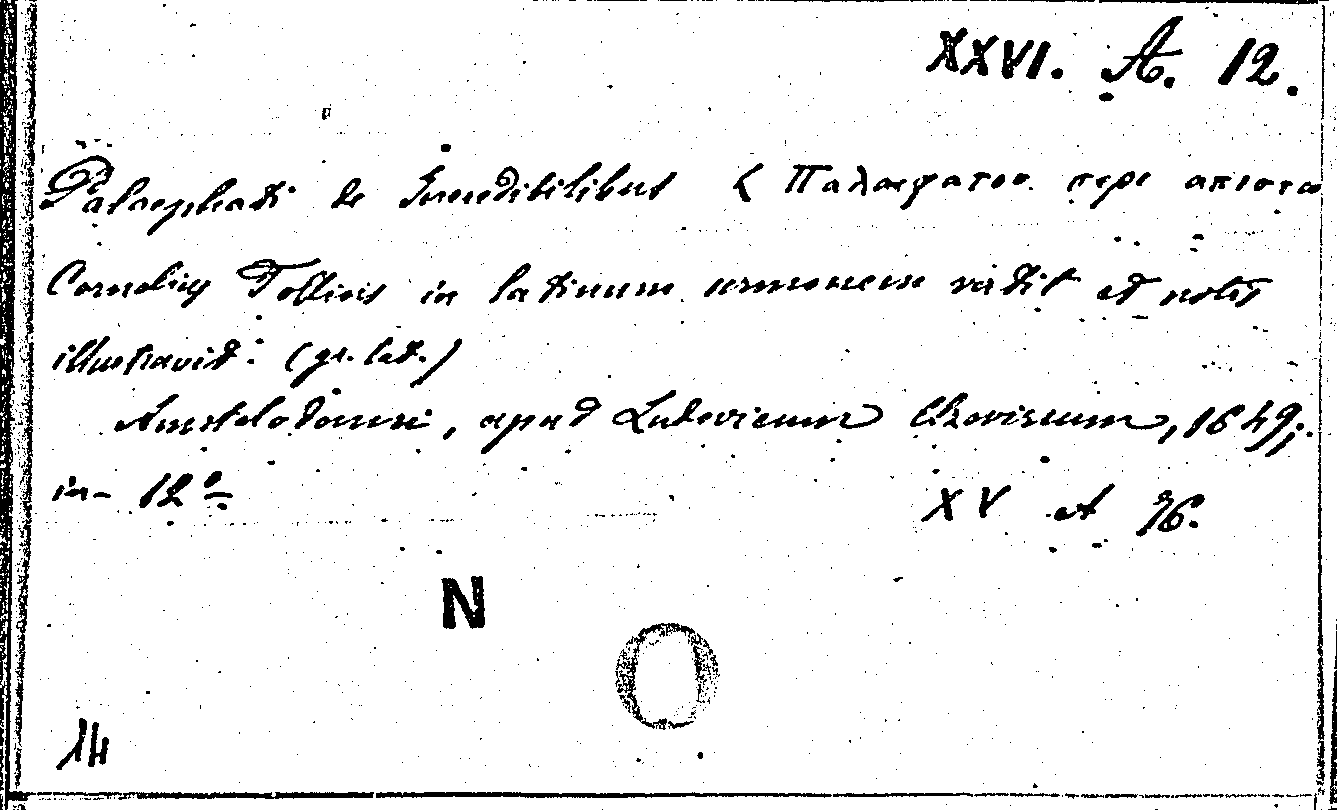 XXVI. A. 12.
Palaephati de Incredibilibus ( Παλαιφατου περι απιστω
Cornelius Tollius in latinum sermonem vertit et notis
illustravit: (gr. lat.)
Amstelodami, apud Ludovicum Elzevirium, 1649;
in-12º
XV A 96.
N
O
14